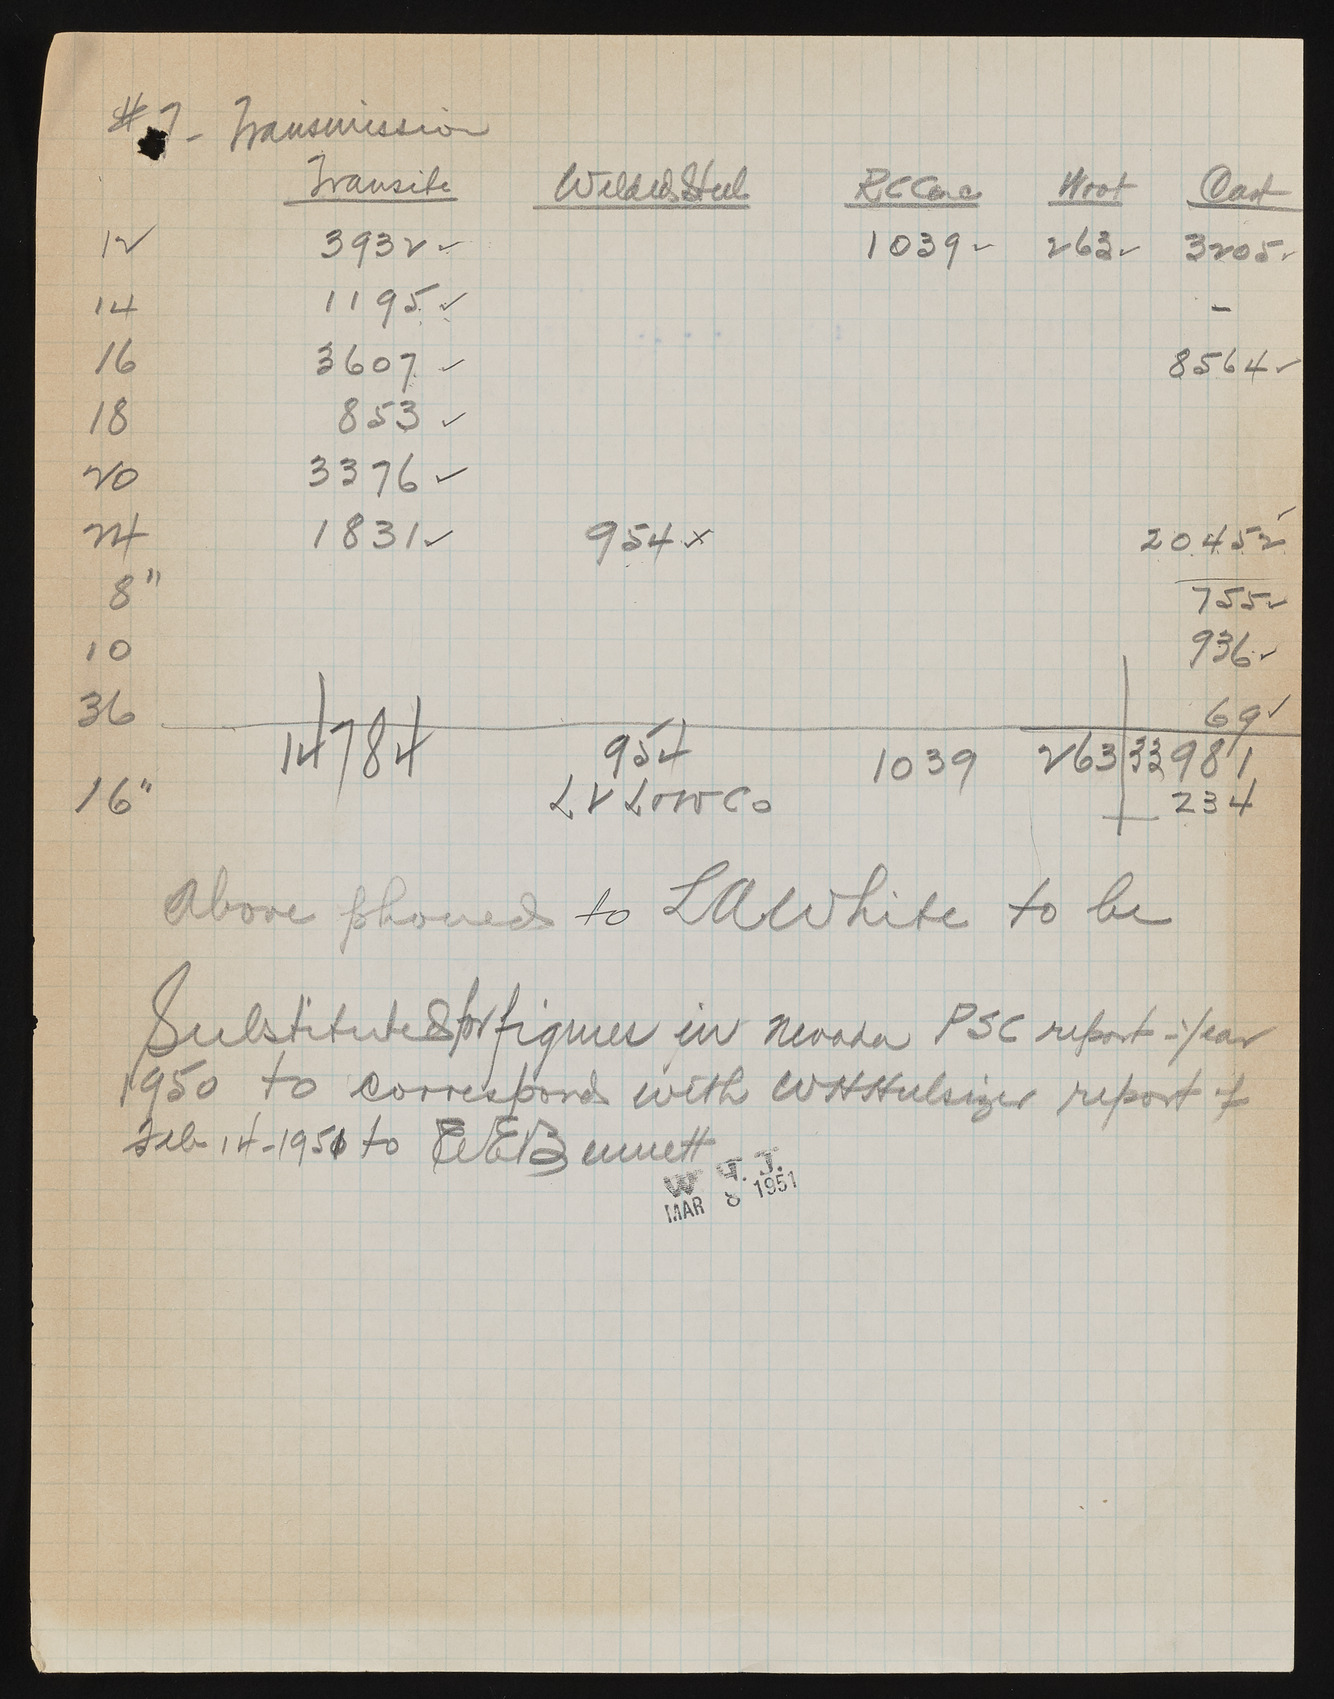 #7- Transmission
Transite Welded Steel RC Conc Wrot Cast
12 3932 ✓ 1039 ✓ 263 ✓ 3205 ✓
14 1195 ✓ -
16 3607 ✓ 8564 ✓
18 853 ✓
20 3376 ✓
24 1831 ✓ 954 x 20452 ✓
8" 755 ✓
10 936 ✓
36 69 ✓
14784 954 1039 263 33981
16" LV L&W Co 234
Above phoned to LA White to be
Substituted for figures in Nevada PSC report - year
1950 to correspond with WH Hulsizer report of
Feb-14-1951 to EE Bennett
W G. J.
MAR 8 1951